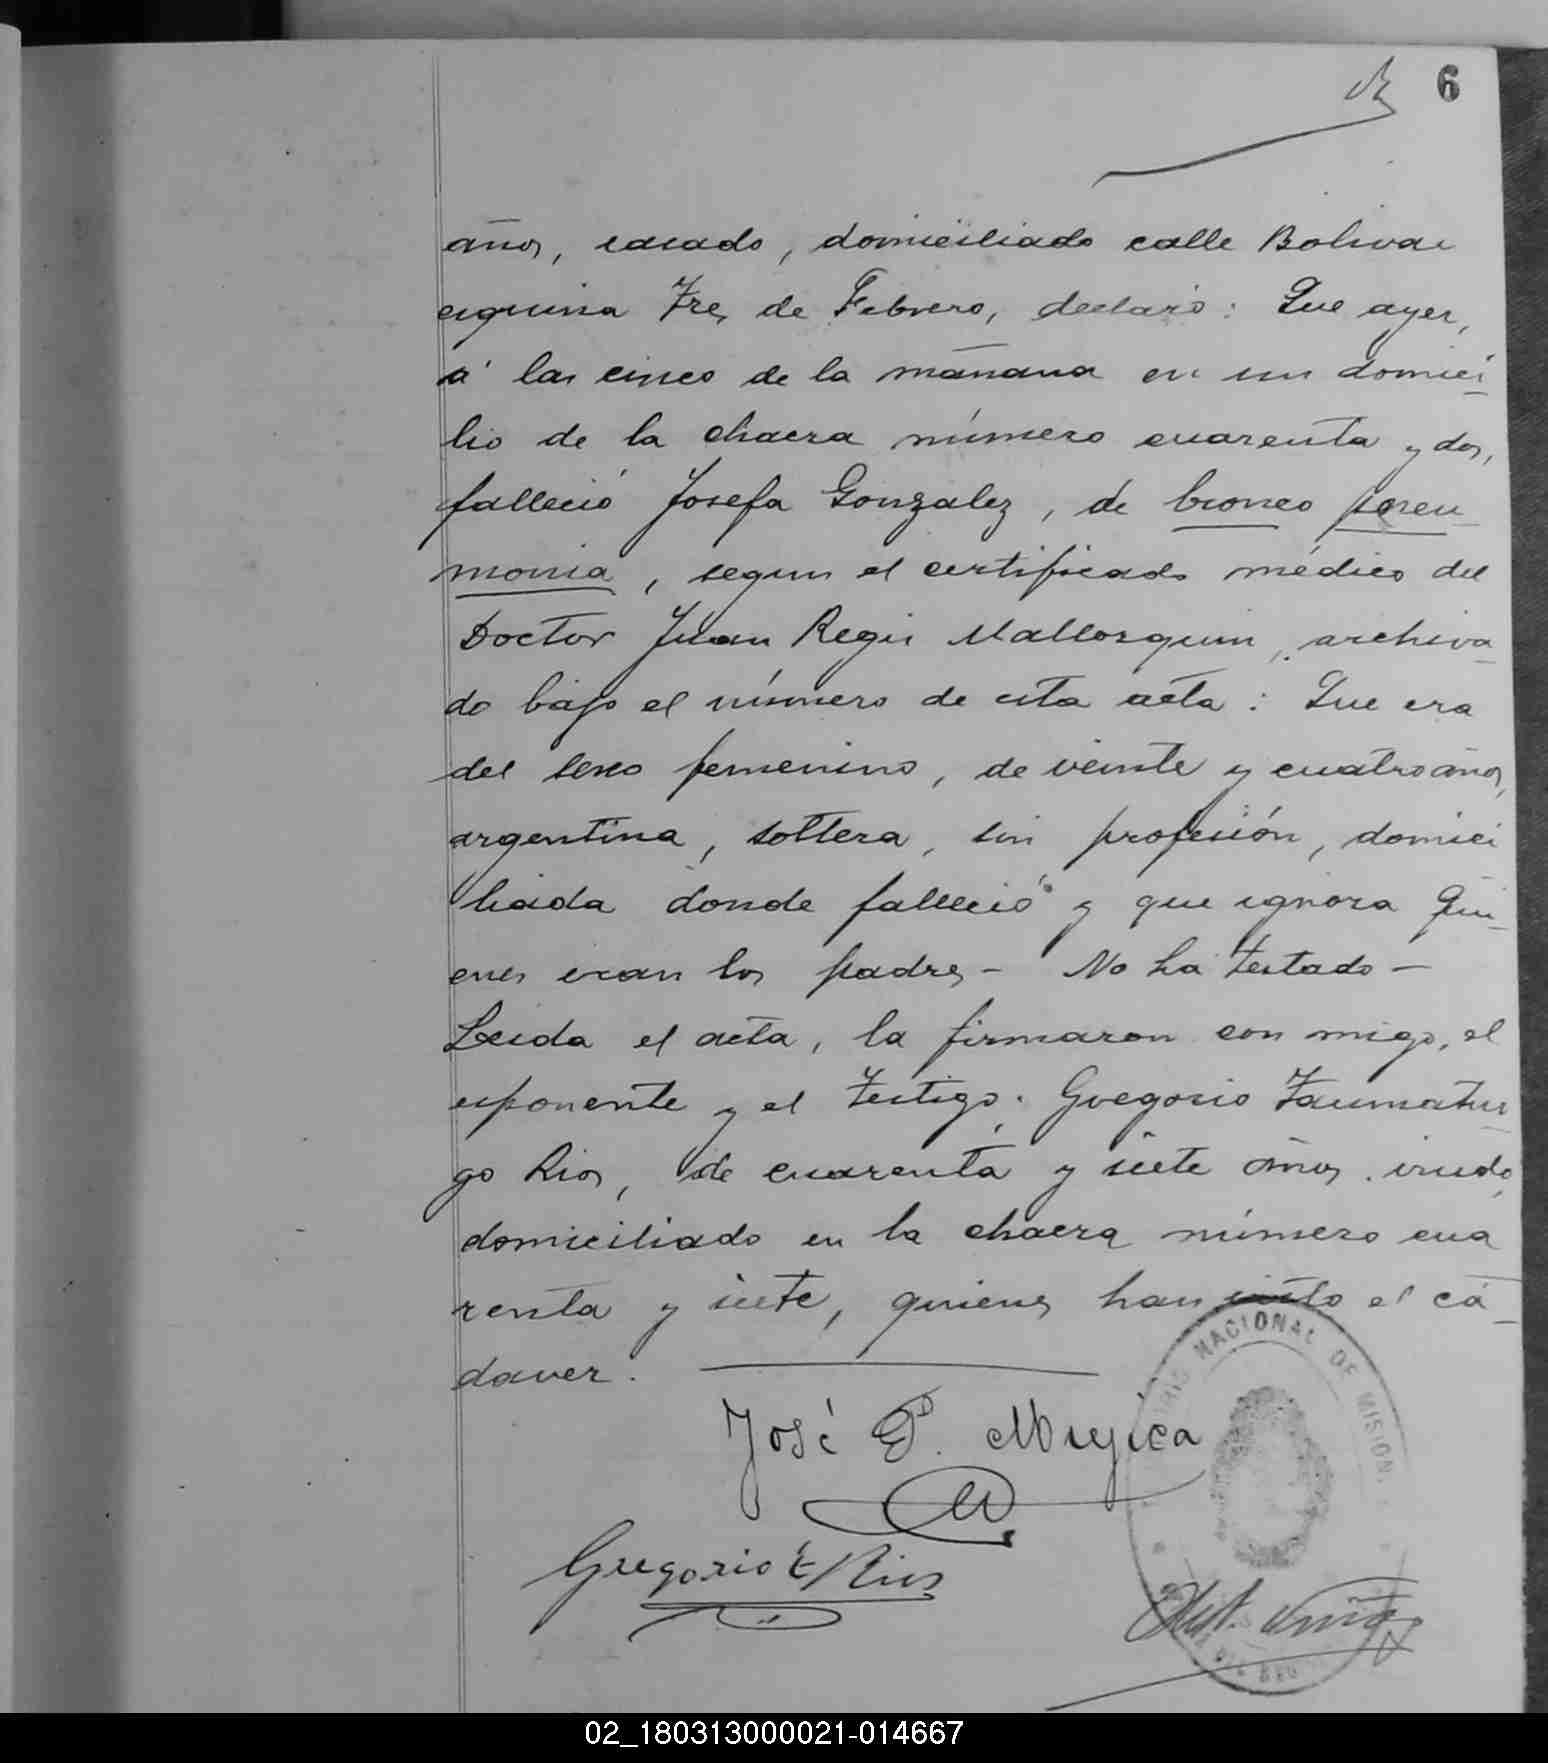 6
años, casado, domiciliado calle Bolivar
esquina Tres de Febrero, declaró: Que ayer,
á las cinco de la mañana en un domici
lio de la chacra número cuarenta y dos,
falleció Josefa Gonzalez, de bronco pneu
monia, segun el certificado médico del
Doctor Juan Regis Mallorquin, archiva
do bajo el número de esta acta: Que era
del sexo femenino, de veinte y cuatro años,
argentina, soltera, sin profesión, domici
liada donde falleció y que ignora qui
enes eran los padres - No ha testado -
Leida el acta, la firmaron con migo, el
esponente y el testigo: Gregorio Taumatur
go Rios, de cuarenta y siete años, viudo,
domiciliado en la chacra número cua
renta y siete, quienes han visto el cá
daver.
José P. Mujica
Gregorio T Rios
NACIONAL DE MISION
02_180313000021-014667